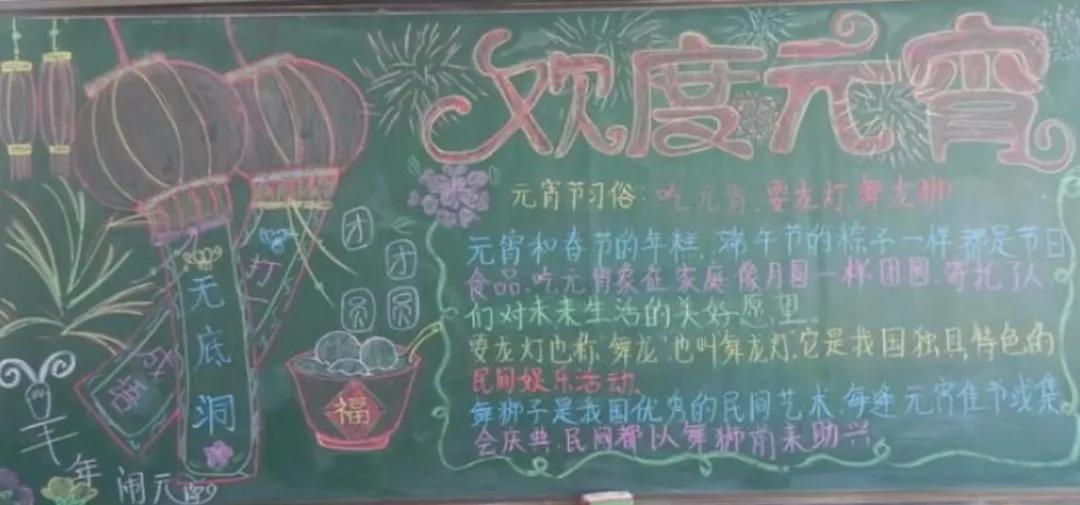 欢度元宵
元宵节习俗:吃元宵、耍龙灯、舞龙狮
元宵和春节的年糕,端午节的粽子一样都是节日
食品,吃元宵象在家庭像月圆一样团圆,寄托了人
们对未来生活的美好愿望
耍龙灯也称舞龙,也叫舞龙灯,它是我国独具特色的
民间娱乐活动,
舞狮子是我国优秀的民间艺术,每逢元宵佳节或集
会庆典,民间都以舞狮前来助兴
团团
圆圆
福
无底洞
打
羊年闹元宵